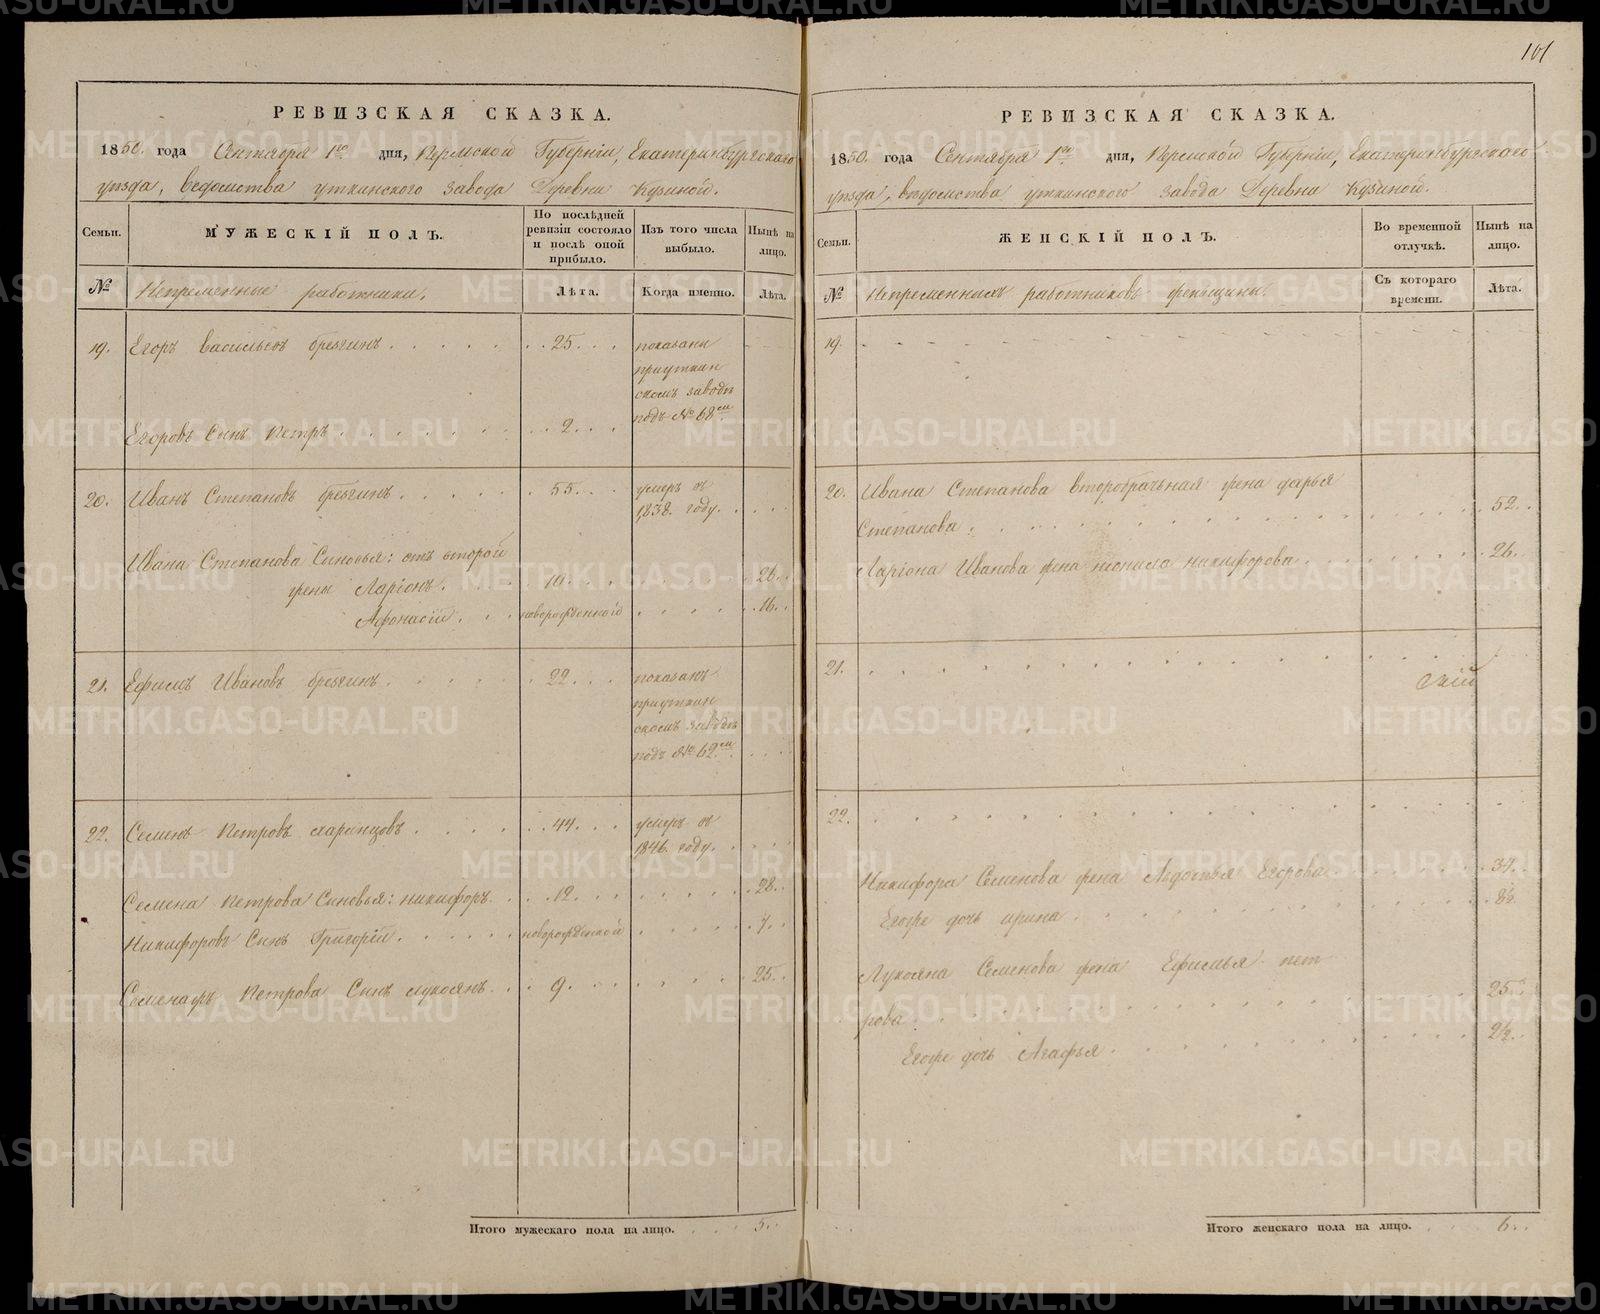 101
РЕВИЗСКАЯ СКАЗКА.
1850. года Сентября 1го дня, Пермской Губерніи, Екатеринбургскаго
уѣзда, ведомства уткинского завода Деревни Кузиной.
Семьи.
МУЖЕСКІЙ ПОЛЪ.
По послѣдней ревизіи состояло и послѣ оной прибыло.
Изъ того числа выбыло.
Нынѣ на лицо.
№
Непременные работники.
Лѣта.
Когда именно.
Лѣта.
19. Егоръ Васильевъ брезгинъ 25
показаны
приуткин
скомъ заводѣ
подъ № 68ем
Егоровъ Сынъ Петръ 2
20. Иванъ Степановъ брезгинъ 55 умеръ въ
1838. году.
Ивана Степанова Сыновья: отъ второй
жены Ларіонъ 10 26
Афонасій новорожденной 16
21. Ефимъ Ивановъ брезгинъ 22 показанъ
приуткин
скомъ заводѣ
подъ № 69ем
22. Семенъ Петровъ 44 умеръ въ
1846. году.
Семена Петрова Сыновья: никифоръ 12 28
Никифоровъ Сынъ Григорій новорожденной 7
Петрова Сынъ лукоянъ 9 25
Итого мужескаго пола на лицо. 5
РЕВИЗСКАЯ СКАЗКА.
1850. года Сентября 1го дня, Пермской Губерніи, Екатеринбургского
уѣзда, ведомства уткинского завода Деревни Кузиной.
Семьи.
ЖЕНСКІЙ ПОЛЪ.
Во временной отлучкѣ.
Нынѣ на лицо.
№
Непременныхъ работниковъ женьщины.
Съ котораго времени.
Лѣта.
19.
20. Ивана Степанова второбрачьная жена дарья
Степанова 52
Ларіона Иванова жена никифорова 26
21.
22.
Никифора Семенова жена Авдотья Егорова 34
Егоже дочь ирина 8½
Лукояна Семенова жена Ефимья пет
рова 25
Егоже дочь Агафья 2½
Итого женскаго пола на лицо. 6
METRIKI.GASO-URAL.RU